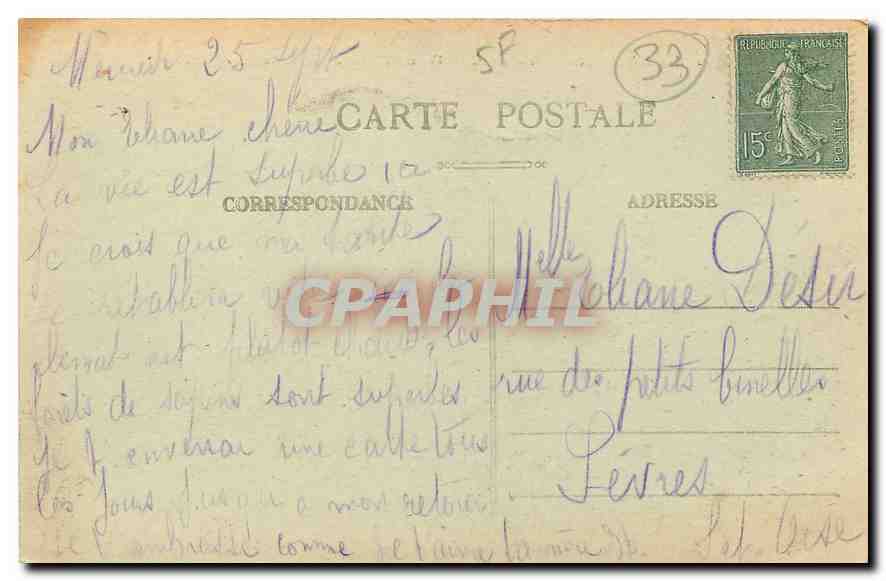 Mercredi 25 Sept
5F
33
REPUBLIQUE FRANÇAISE
15c
POSTES
CARTE POSTALE
CORRESPONDANCE
ADRESSE
Mon Eliane chérie
La vie est superbe ici
Je crois que ma santé
se rétablira
climat est plutôt chaud, les
forêts de sapins sont superbes
Je t' enverrai une carte tous
les jours jusqu'à mon retour
Je t' embrasse comme je t'aime
Melle Eliane Désir
rue des petits binelles
Sèvres
S et Oise
CPAPHIL